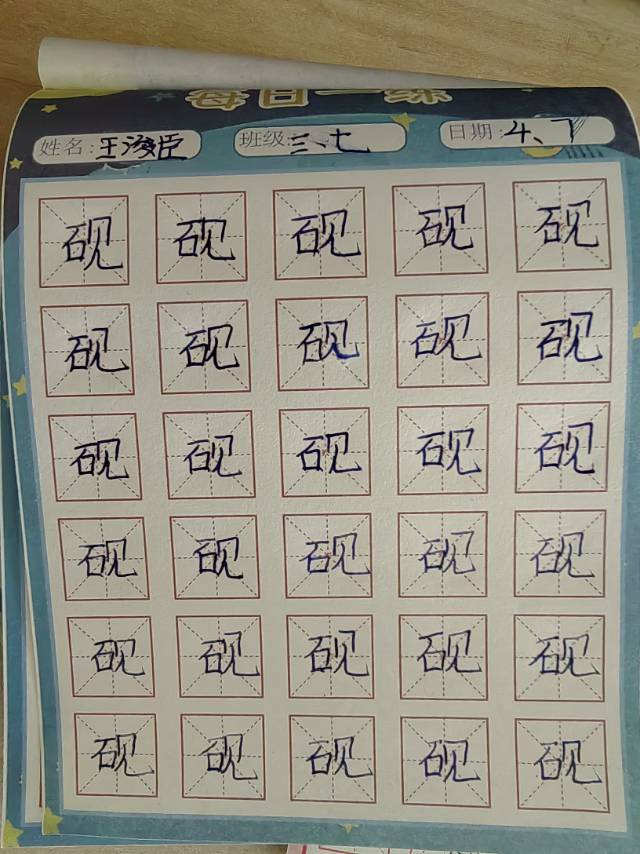 每日一练
姓名:王浚臣 班级:三、七 日期:4、7
砚 砚 砚 砚 砚
砚 砚 砚 砚 砚
砚 砚 砚 砚 砚
砚 砚 砚 砚 砚
砚 砚 砚 砚 砚
砚 砚 砚 砚 砚